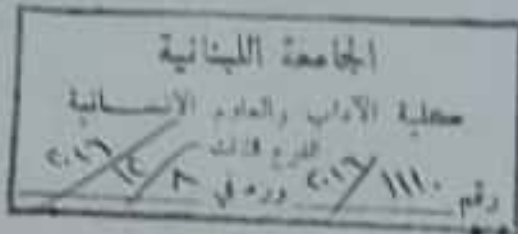 الجامعة اللبنانية
كلية الآداب والعلوم الانسانية
الفرع الثالث
رقم ١١١٠/٢٠١٦ ورد في ٨/٤/٢٠١٦